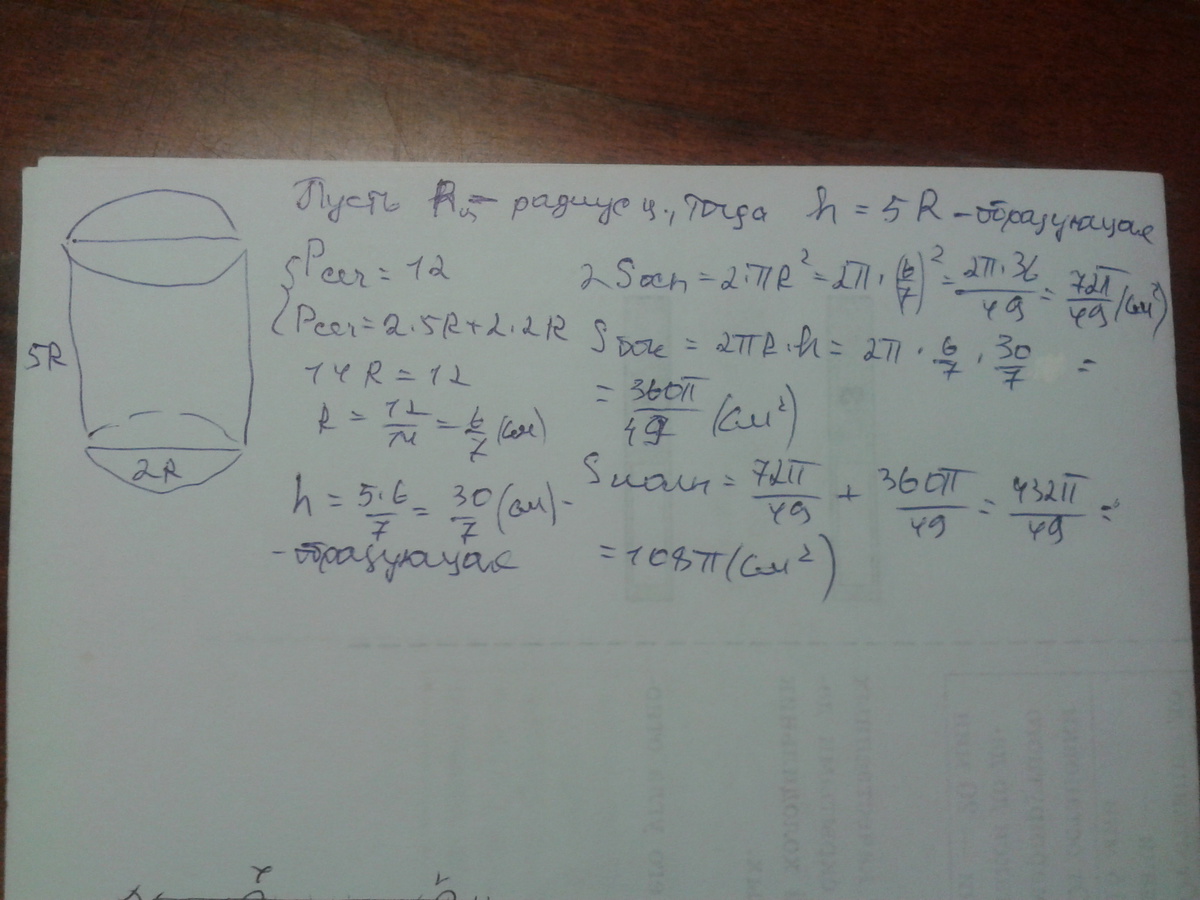 Пусть R ц – радиус ц., тогда h = 5R – образующая
{ Pсеч = 12
Pсеч = 2·5R + 2·2R
14R = 12
R = 12/14 = 6/7 (см)
h = 5·6/7 = 30/7 (см) -
- образующая
2Sосн = 2·πR² = 2π·(6/7)² = 2π·36/49 = 72π/49 (см²)
Sбок = 2πR·h = 2π · 6/7 · 30/7 =
= 360π/49 (см²)
Sполн = 72π/49 + 360π/49 = 432π/49 =
= 108π (см²)
5R
2R